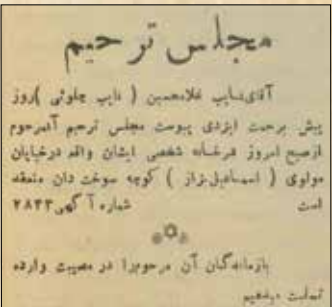 مجلس ترحیم
آقای نایب غلامحسین ( نایب چلوئی )روز
پیش برحمت ایزدی پیوست مجلس ترحیم آنمرحوم
ازصبح امروز درخانه شخصی ایشان واقع درخیابان
مولوی ( اسمعیل بزاز ) کوچه سوخت دان منعقد
است شماره آگهی ۲۸۴۳
بازماندگان آن مرحومرا در مصیبت وارده
تسلیت میدهیم